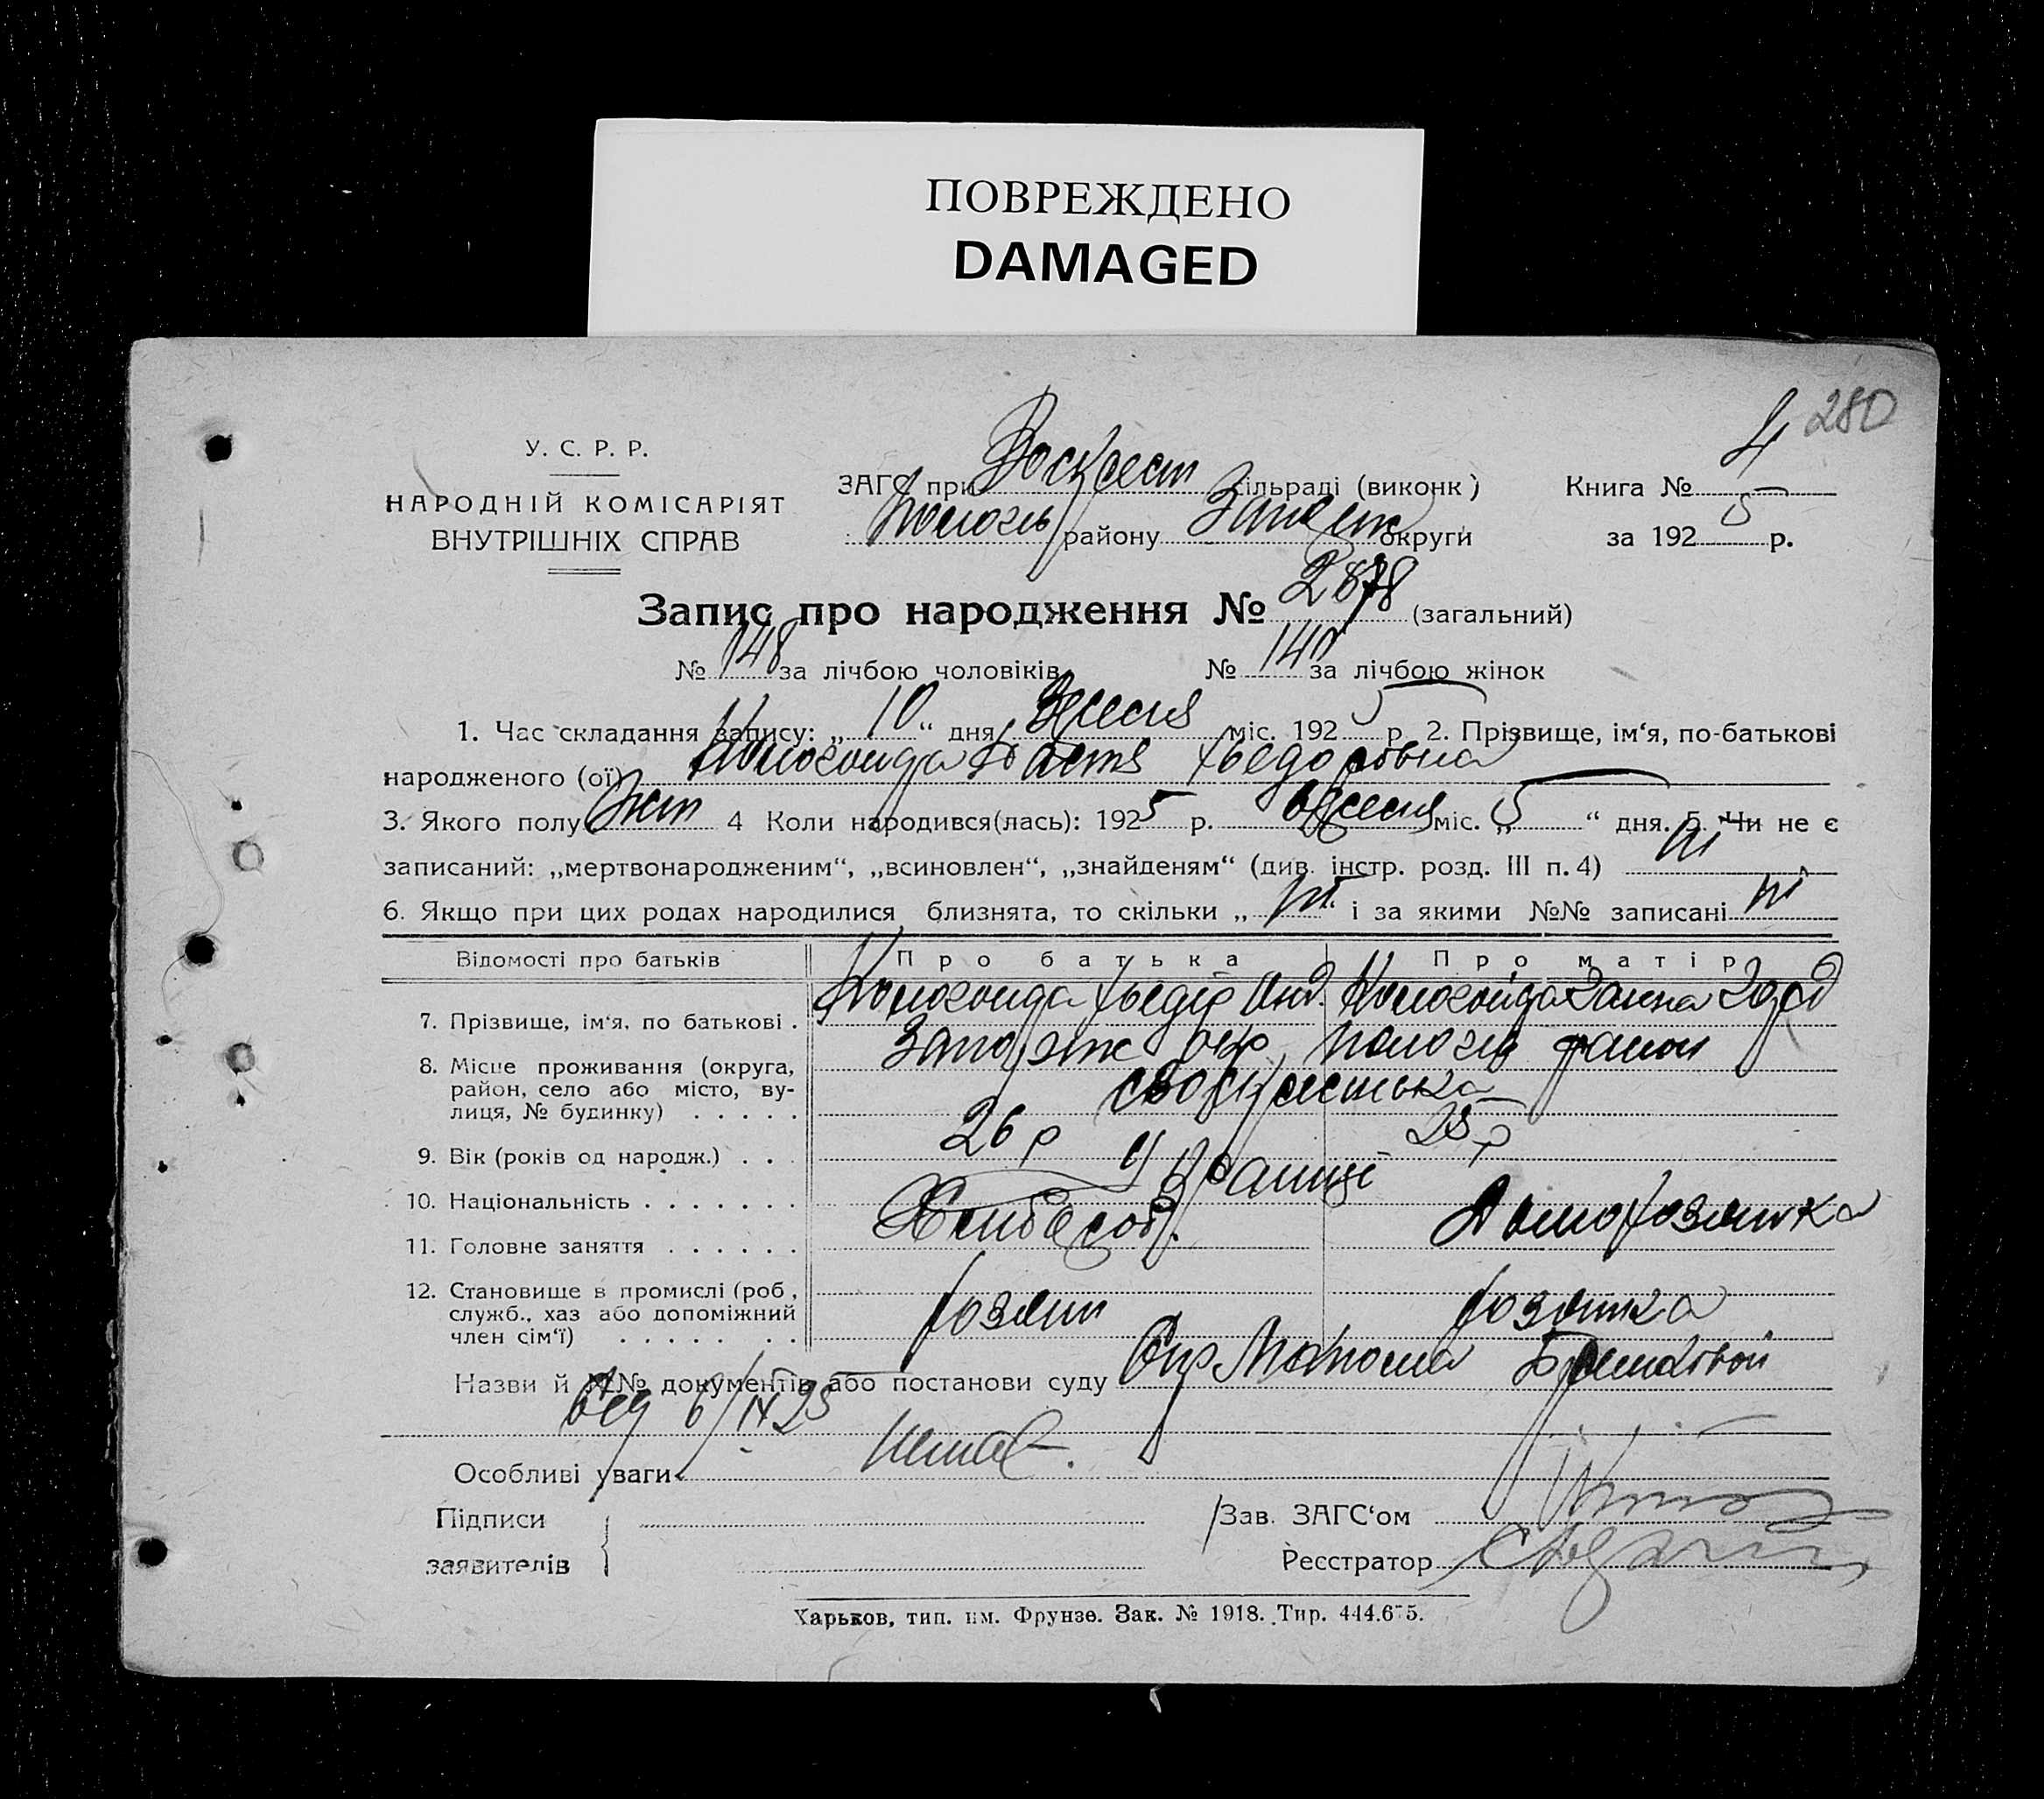 ПОВРЕЖДЕНО
DAMAGED
280
У. С. Р. Р.
НАРОДНІЙ КОМІСАРІЯТ
ВНУТРІШНІХ СПРАВ
ЗАГС при Воскресен сільраді (виконк)
району округи
Книга № 4
за 1925 р.
Запис про народження № 2878 (загальний)
№ 148 за лічбою чоловіків № 140 за лічбою жінок
1. Час складання запису: „ 10 “ дня Вересня міс. 1925 р 2. Прізвище, ім‘я, по-батькові
народженого (ої) Федоровна
3. Якого полу Жен 4 Коли народився(лась): 1925 р. Вересня міс. „ 5 “ дня. 5. Чи не є
записаний: „мертвонародженим“, „всиновлен“, „знайденям“ (див. інстр. розд. III п. 4) ні
6. Якщо при цих родах народилися близнята, то скільки „ ні “ і за якими №№ записані ні
Відомості про батьків Про батька Про матір
7. Прізвище, ім‘я, по батькові . Федір Ганна
8. Місце проживання (округа,
район, село або місто, ву-
лиця, № будинку) . . . . . Запоріж окр, район
9. Вік (рокiв од народж.) . . . 26 р 25 р
10. Національність . . . . . . . Українці
11. Головне заняття . . . . . . Хлібороб. Домохозяйка
12. Становище в промислі (роб,
служб., хаз або допоміжний
член сім‘ї) . . . . . . . хозяин хозяйка
Назви й №№ документів або постанови суду
від 6/IX 25
Особливі уваги Немає.
Підписи
заявителів
Зав. ЗАГС‘ом
Реєстратор
Харьков, тип. им. Фрунзе. Зак. № 1918. Тир. 444.675.